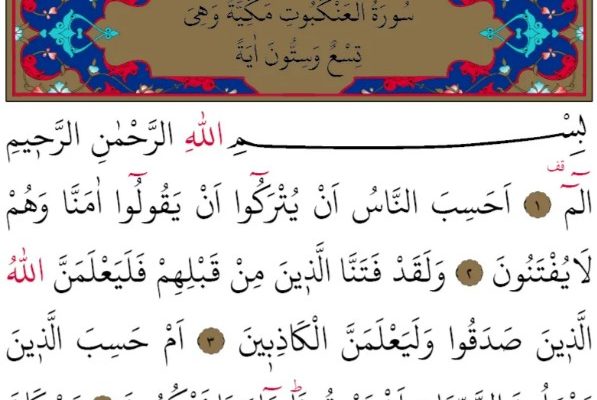 سُورَةُ الْعَنْكَبُوتِ مَكِّيَّةٌ وَهِيَ
تِسْعٌ وَسِتُّونَ اٰيَةً
بِسْمِ اللّٰهِ الرَّحْمٰنِ الرَّح۪يمِ
الٓمٓ ۚ قف ﴿١﴾ اَحَسِبَ النَّاسُ اَنْ يُتْرَكُٓوا اَنْ يَقُولُٓوا اٰمَنَّا وَهُمْ
لَا يُفْتَنُونَ ﴿٢﴾ وَلَقَدْ فَتَنَّا الَّذ۪ينَ مِنْ قَبْلِهِمْ فَلَيَعْلَمَنَّ اللّٰهُ
الَّذ۪ينَ صَدَقُوا وَلَيَعْلَمَنَّ الْكَاذِب۪ينَ ﴿٣﴾ اَمْ حَسِبَ الَّذ۪ينَ